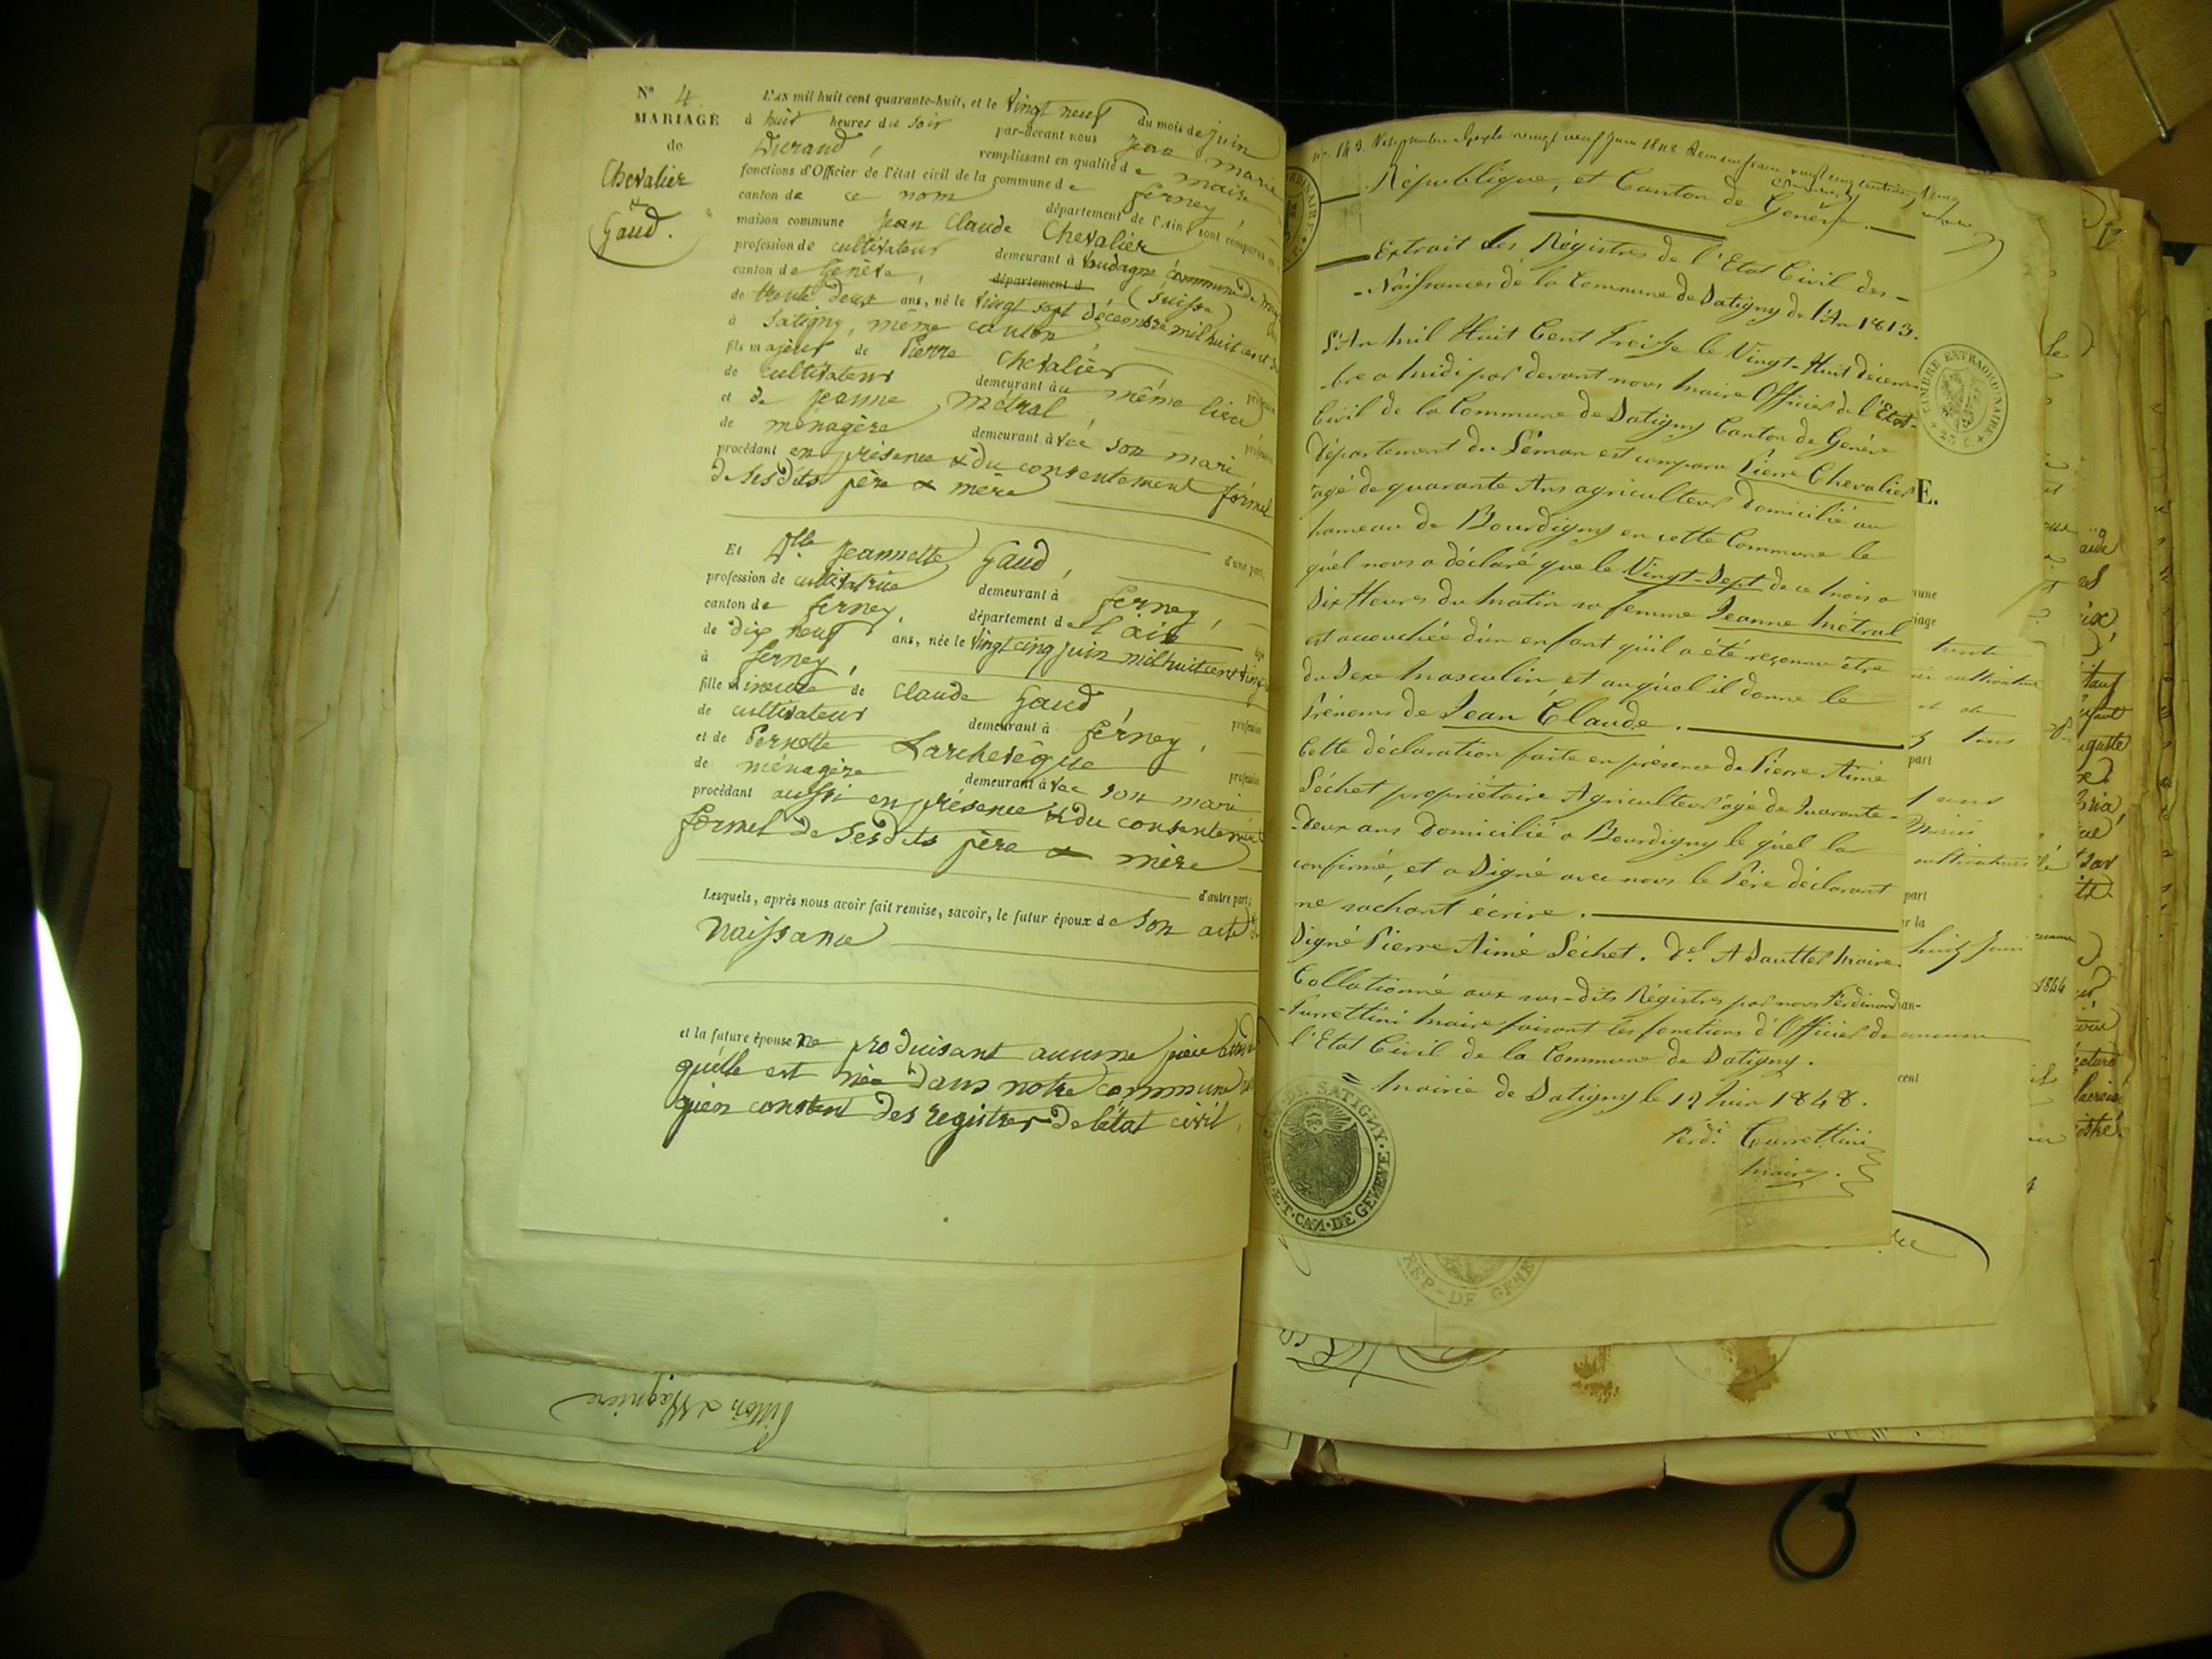 N° 4.
MARIAGE
de
Chevalier
et
Gaud.
L'AN mil huit cent quarante-huit, et le vingt neuf du mois de juin
à huit heures du soir par-devant nous Jean Marie
Durand, remplissant en qualité de maire
fonctions d'Officier de l'état civil de la commune de ferney,
canton de ce nom département de l'Ain, sont comparus en
maison commune Jean Claude Chevalier
profession de cultivateur demeurant à commune de
canton de Genève, département d (Suisse)
de trente deux ans, né le vingt sept décembre mil huit cent
à Satigny, même canton
fils majeur de Pierre Chevalier profession
de cultivateur demeurant au même lieu
et de Jeanne Métral profession
de ménagère demeurant avec son mari
procédant en présence & du consentement formel
de sesdits père & mère
d'une part;
Et Dlle Jeannette Gaud,
profession de cultivatrice demeurant à ferney
canton de ferney, département de l'ain
de dix neuf ans, née le vingt cinq juin mil huit cent vingt
à ferney,
fille mineure de Claude Gaud, profession
de cultivateur demeurant à ferney,
et de Pernette Larchevêque profession
de ménagère demeurant avec son mari
procédant aussi en présence & du consentement
formel de sesdits père & mère
d'autre part;
Lesquels, après nous avoir fait remise, savoir, le futur époux de son acte de
naissance
et la future épouse ne produisant aucune pièce
qu'elle est née dans notre commune
qu'en constent des registres de l'état civil,
Pitton & Magninie
République, et Canton de Genève.
Extrait des Régistres de l'Etat Civil des
Naissances de la Commune de Satigny de l'An 1813.
L'An mil Huit Cent Treize le Vingt-Huit décem-
-bre a midi par devant nous Maire Officier de l'Etat-
Civil de la Commune de Satigny Canton de Genève
Département du Léman est comparu Pierre Chevalier
agé de quarante Ans agriculteur domicilié au
hameau de Bourdigny en cette Commune le
quél nous a déclaré que le Vingt-Sept de ce mois a
Dix Heures du matin sa femme Jeanne Métral
est accouchée d'un enfant qu'il a été reconnu être
du Sexe masculin, et auquel il donne le
Prénoms de Jean Claude.
Cette déclaration faite en présence de Pierre Aimé
Séchet propriétaire Agriculteur agé de Quarante-
-deux ans Domicilié a Bourdigny le quél la
confirmé, et a Signé avec nous le Père déclarant
ne sachant écrire.
Signé Pierre Aimé Séchet. A Sautter Maire.
Collationné aux sus-dits Régistres par nous Ferdinand
Turrettini Maire faisant les fonctions d'Officier de
l'Etat Civil de la Commune de Satigny.
Mairie de Satigny le 12 Juin 1848.
Ferdi Turrettini
Maire.
TIMBRE EXTRAORDINAIRE
25 C.
DE SATIGNY. RÉP. ET CAN. DE GENEVE
REP. DE GENE
E.
part
part
1844
cent